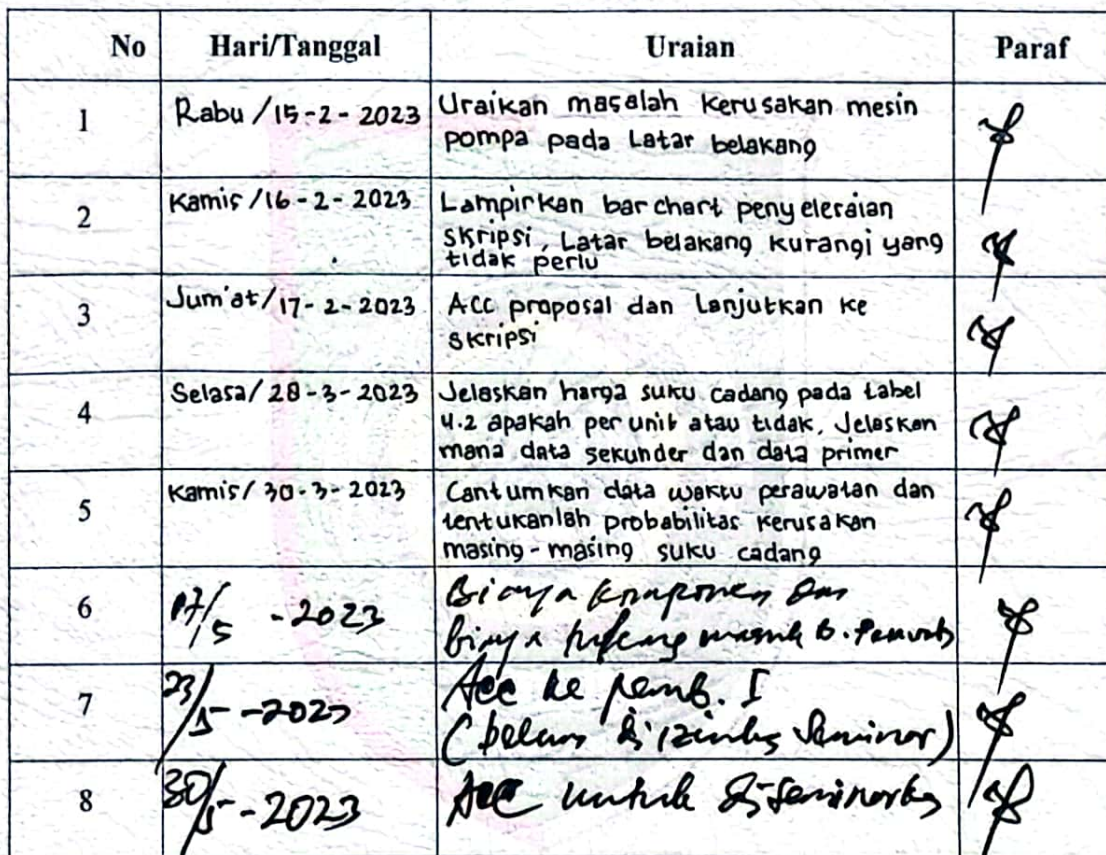 No Hari/Tanggal Uraian Paraf
1 Rabu / 15-2-2023 Uraikan masalah kerusakan mesin
pompa pada Latar belakang
2 Kamis / 16-2-2023 Lampirkan bar chart penyelesaian
skripsi, Latar belakang kurangi yang
tidak perlu
3 Jum'at / 17-2-2023 ACC proposal dan Lanjutkan ke
skripsi
4 Selasa / 28-3-2023 Jelaskan harga suku cadang pada tabel
4.2 apakah per unit atau tidak, Jelaskan
mana data sekunder dan data primer
5 Kamis / 30-3-2023 Cantumkan data waktu perawatan dan
tentukanlah probabilitas kerusakan
masing-masing suku cadang
6 17/5 -2023 Biaya komponen dan
biaya masuk B.
7 23/5 -2023 Acc ke pemb. I
(belum Seminar)
8 30/5 -2023 Acc untuk